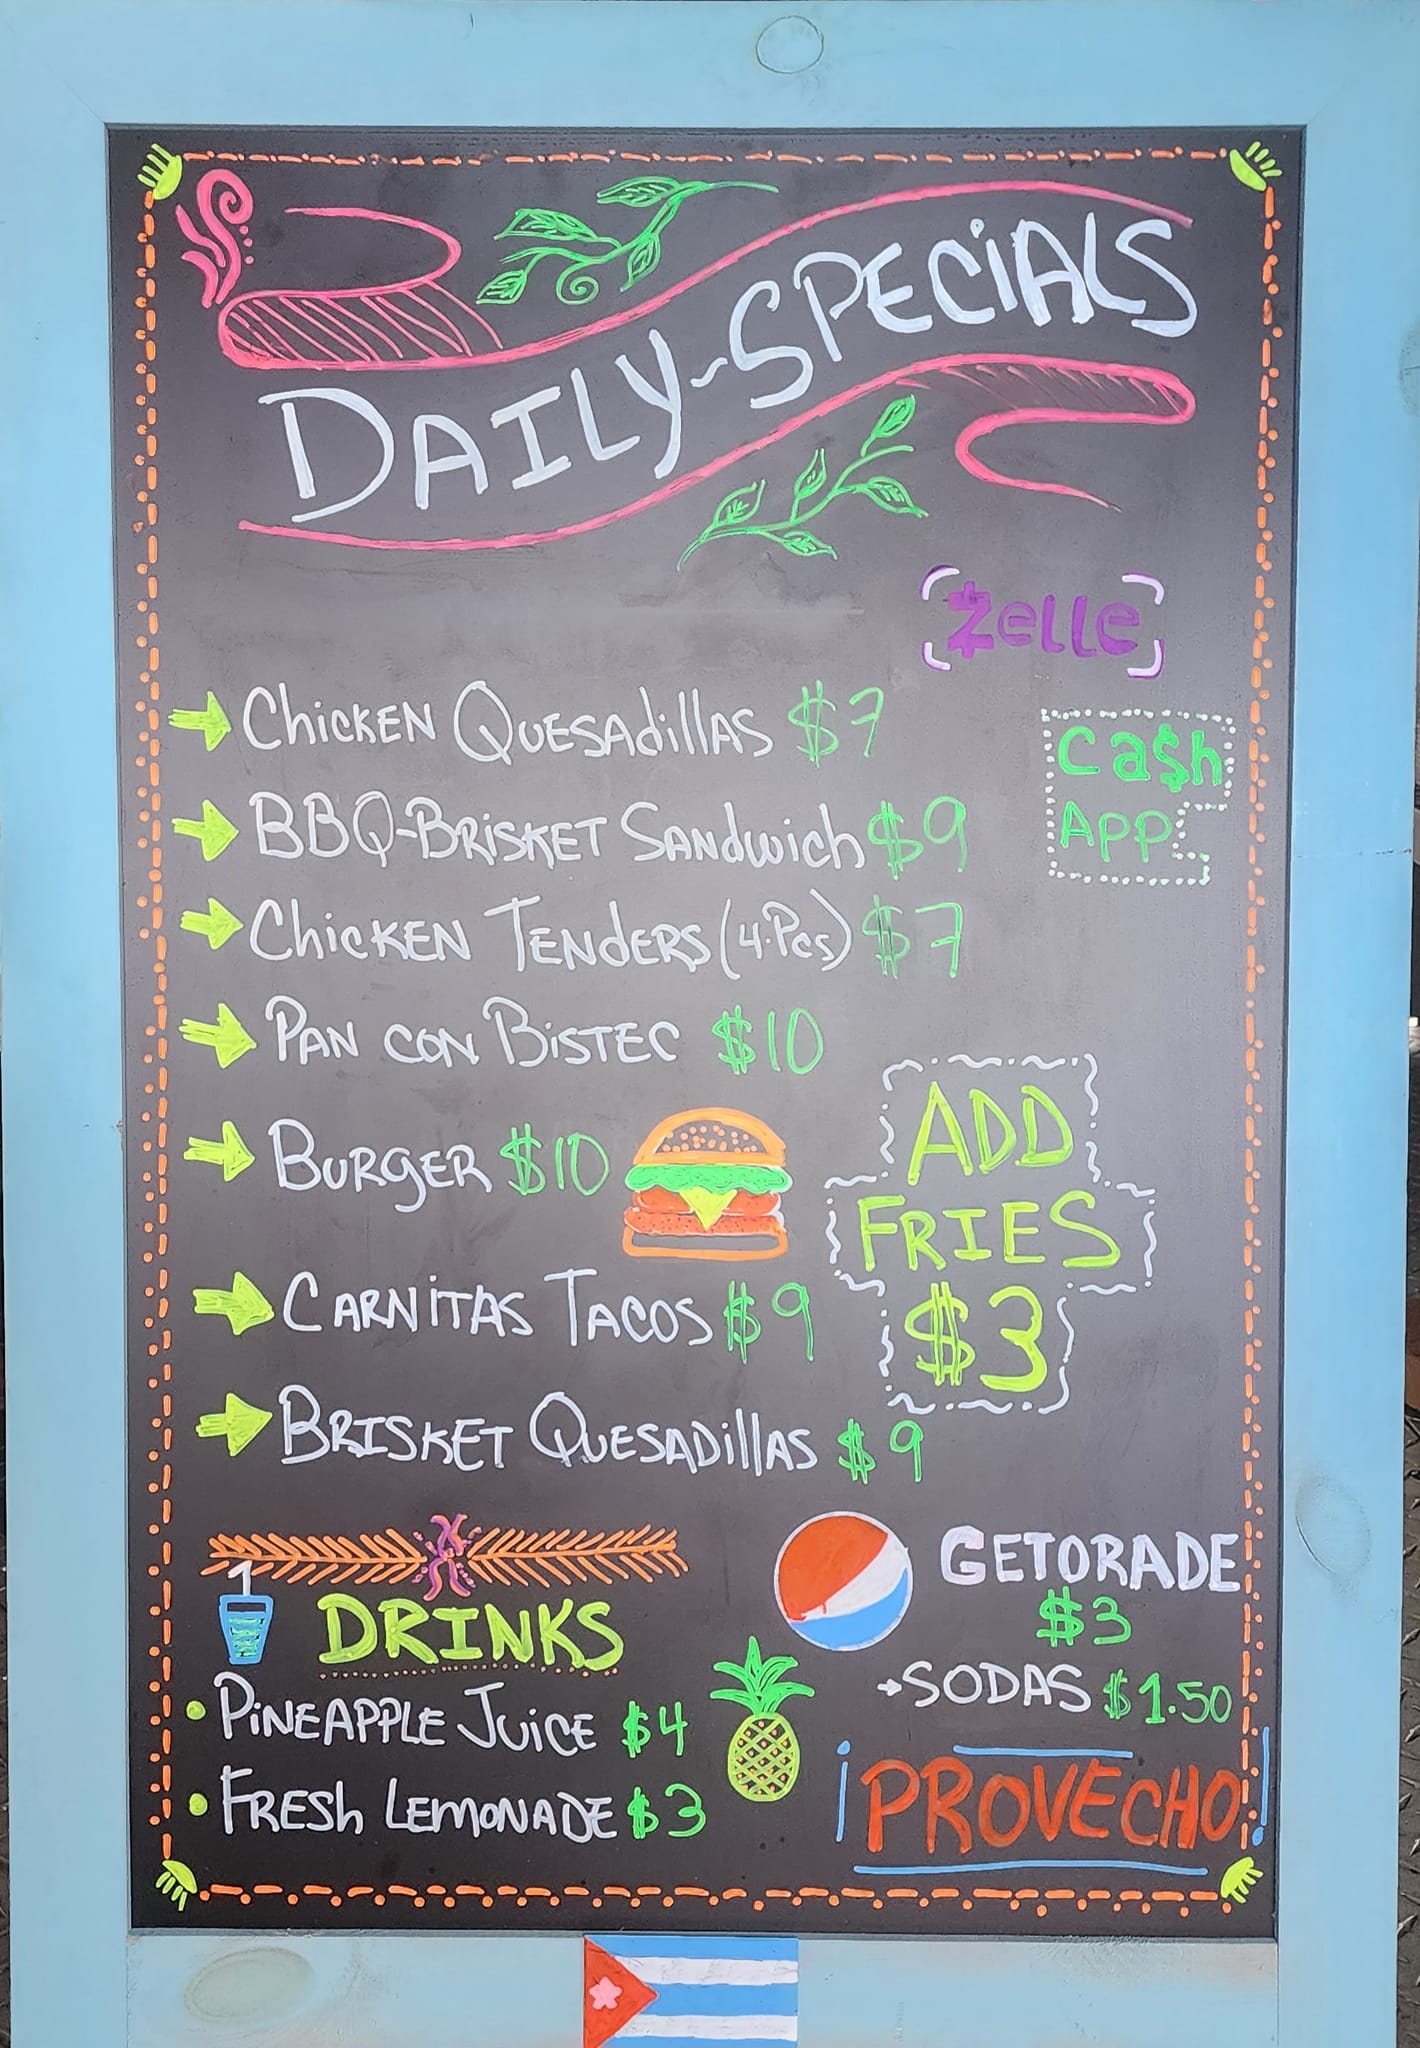 DAILY~SPECiALS
Zelle
ChicKEN QUESAdillAS $7
Ca$h
App
BBQ-BRiSKET SANdwich $9
ChicKEN TENdERS (4.Pcs) $7
PAN CON BiSTEC $10
ADD
BURgER $10
FRIES
CARNiTAS TACOS $9
$3
BRISKET QUESADillAS $9
GETORADE
$3
DRINKS
SODAS $1.50
PiNEAPPLE JUiCE $4
FRESh LEMONADE $3
¡PROVECHO!